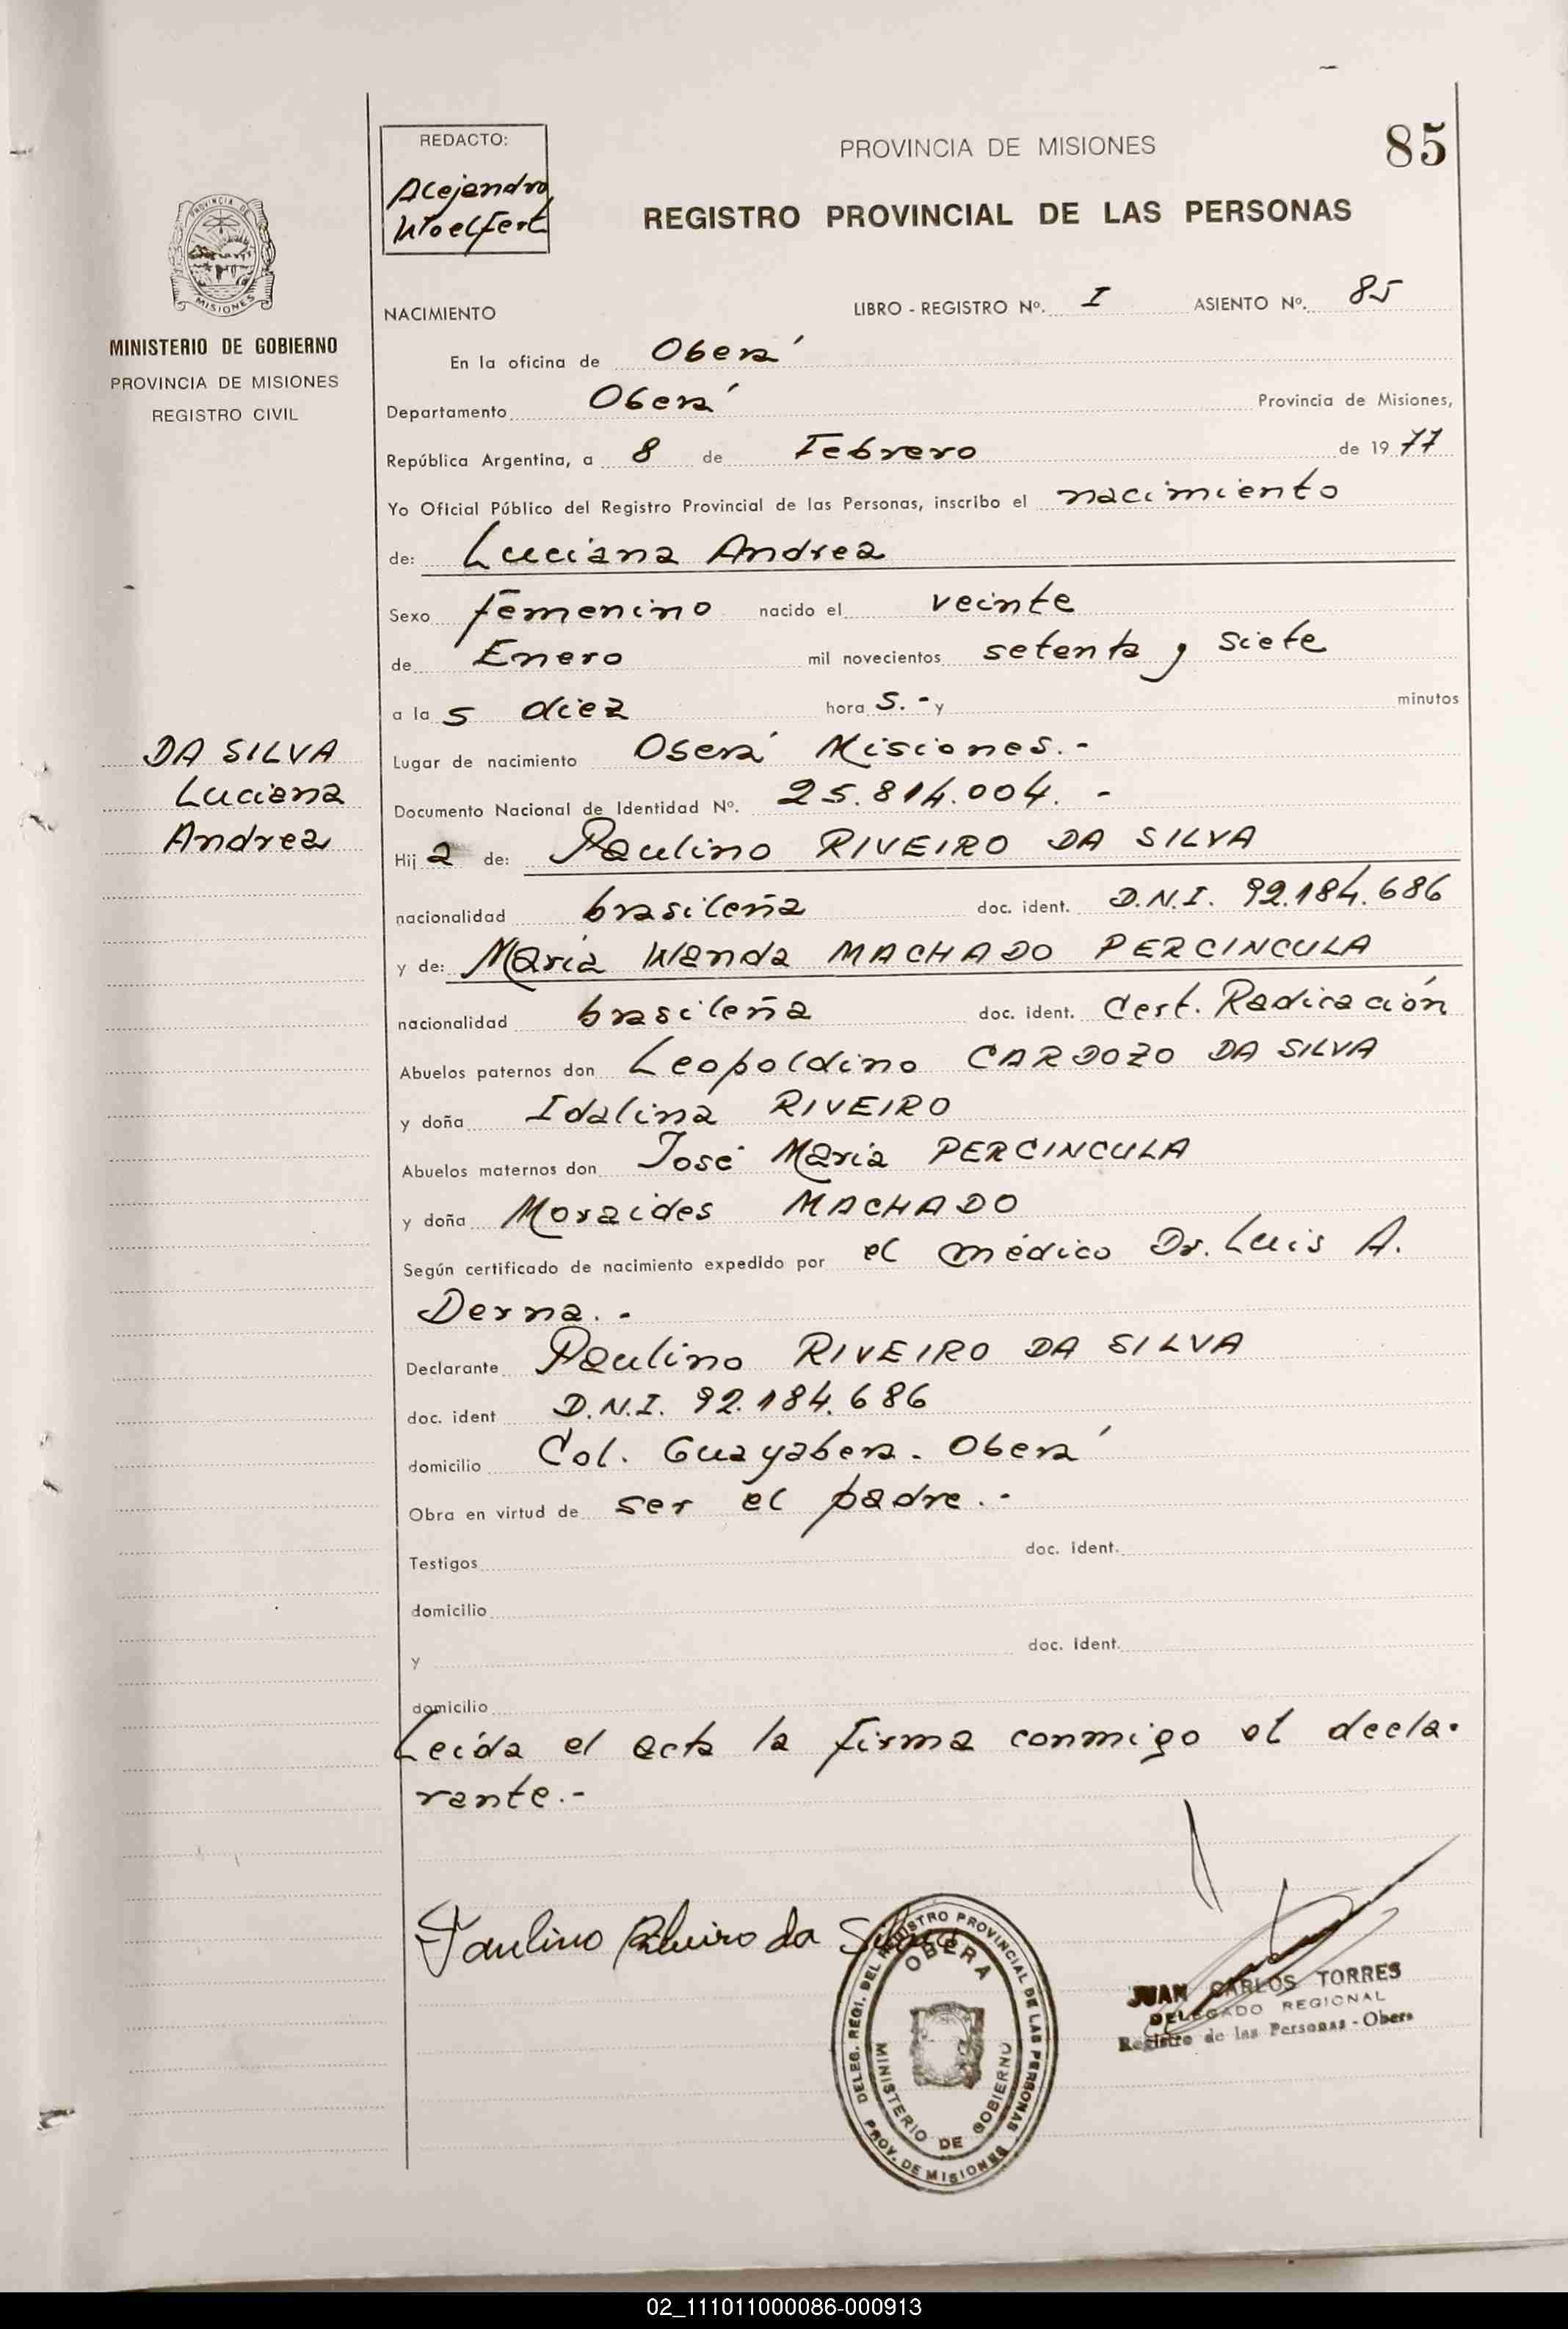 REDACTO:
Alejandro
Woelfert
PROVINCIA DE MISIONES
85
REGISTRO PROVINCIAL DE LAS PERSONAS
PROVINCIA DE
MISIONES
MINISTERIO DE GOBIERNO
PROVINCIA DE MISIONES
REGISTRO CIVIL
NACIMIENTO LIBRO - REGISTRO Nº. I ASIENTO Nº. 85
En la oficina de Oberá
Departamento Oberá Provincia de Misiones,
República Argentina, a 8 de Febrero de 19 77
Yo Oficial Público del Registro Provincial de las Personas, inscribo el nacimiento
de: Luciana Andrea
Sexo femenino nacido el veinte
de Enero mil novecientos setenta y siete
a la s diez hora s.- y minutos
Lugar de nacimiento Oberá Misiones.-
Documento Nacional de Identidad Nº. 25.814.004. -
DA SILVA
Luciana
Andrea
Hij a de: Paulino RIVEIRO DA SILVA
nacionalidad brasileña doc. ident. D.N.I. 92.184.686
y de: María Wanda MACHADO PERCINCULA
nacionalidad brasileña doc. ident. Cert. Radicación
Abuelos paternos don Leopoldino CARDOZO DA SILVA
y doña Idalina RIVEIRO
Abuelos maternos don José María PERCINCULA
y doña Moraides MACHADO
Según certificado de nacimiento expedido por el médico Dr. Luis A.
Derna.-
Declarante Paulino RIVEIRO DA SILVA
doc. ident D.N.I. 92.184.686
domicilio Col. Guayabera. Oberá
Obra en virtud de ser el padre.-
Testigos doc. ident.
domicilio
y doc. ident.
domicilio
Leída el acta la firma conmigo el decla-
rante.-
Paulino Ribeiro da Silva
DELEG. REGI. DEL REGISTRO PROVINCIAL DE LAS PERSONAS
OBERA
MINISTERIO DE GOBIERNO
PROV. DE MISIONES
JUAN CARLOS TORRES
DELEGADO REGIONAL
Registro de las Personas - Obera
02_111011000086-000913